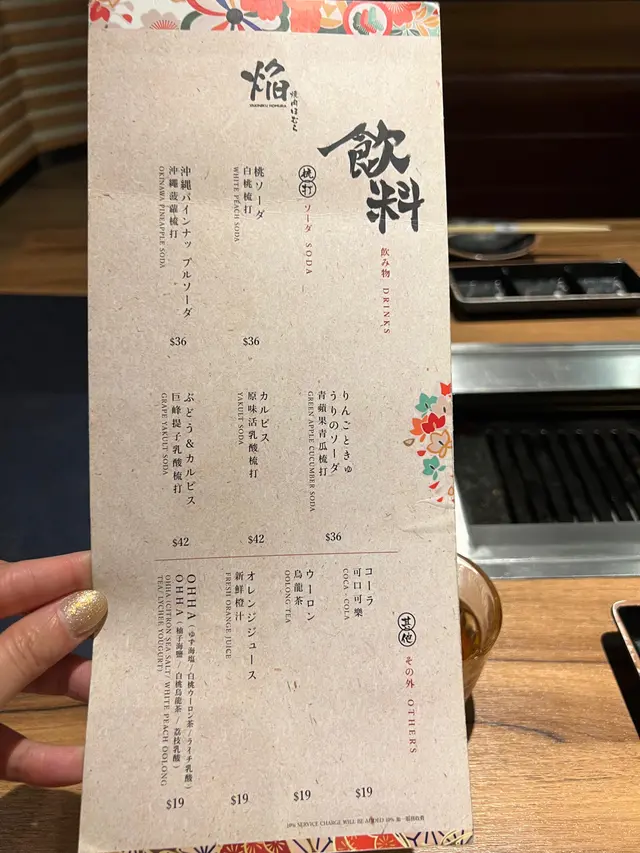 焔
焼肉ほむら
YAKINIKU HOMURA
飲料
飲み物 DRINKS
梳打 ソーダ SODA
桃ソーダ
白桃梳打
WHITE PEACH SODA
$36
沖縄パインナップルソーダ
沖繩菠蘿梳打
OKINAWA PINEAPPLE SODA
$36
りんごときゅ
うりのソーダ
青蘋果青瓜梳打
GREEN APPLE CUCUMBER SODA
$36
カルピス
原味活乳酸梳打
YAKULT SODA
$42
ぶどう&カルピス
巨峰提子乳酸梳打
GRAPE YAKULT SODA
$42
其他 その外 OTHERS
コーラ
可口可樂
COCA - COLA
$19
ウーロン
烏龍茶
OOLONG TEA
$19
オレンジジュース
新鮮橙汁
FRESH ORANGE JUICE
$19
OHHA(ゆず海塩/白桃ウーロン茶/ライチ乳酸)
OHHA(柚子海鹽/白桃烏龍茶/荔枝乳酸)
OHHA (CITRON SEA SALT/ WHITE PEACH OOLONG
TEA/ LYCHEE YOUGURT)
$19
10% SERVICE CHARGE WILL BE ADDED 10% 加一服務收費